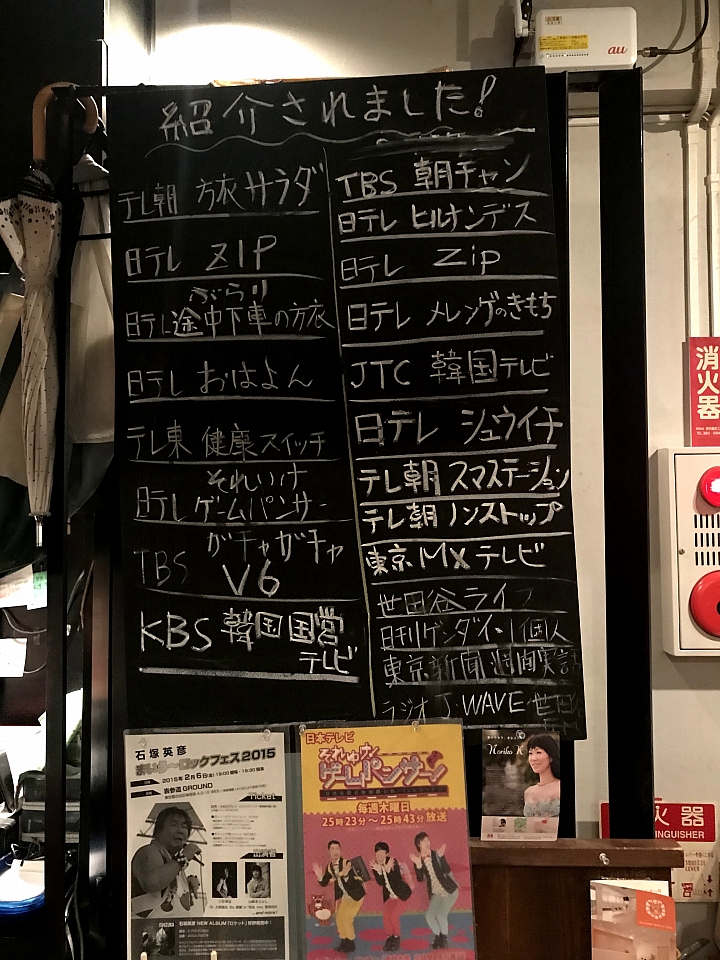 紹介されました!
テレ朝 方衣サラダ
日テレ ZIP
ぶらり
日テレ 途中下車の方衣
日テレ おはよん
テレ東 健康スイッチ
それいけ
日テレ ゲームパンサー
TBS ガチャガチャ
V6
KBS 韓国国営
テレビ
TBS 朝チャン
日テレ ヒルナンデス
日テレ Zip
日テレ メレンゲのきもち
JTC 韓国テレビ
日テレ シュウイチ
テレ朝 スマステーション
テレ朝 ノンストップ
東京MXテレビ
世田谷ライフ
日刊ゲンダイ・1個人
東京新聞 週間実話
ラジオ J-WAVE・世田
au
消火器
石塚英彦
まいう〜ロックフェス2015
2015年2月6日
表参道 GROUND
Ticket
出演者
...and more!
石塚英彦 NEW ALBUM「ロケット」好評発売中!
日本テレビ
それいけ!
ゲームパンサー!
毎週木曜日
25時23分〜25時43分 放送
Noriko K
火器
INGUISHER
LEVER